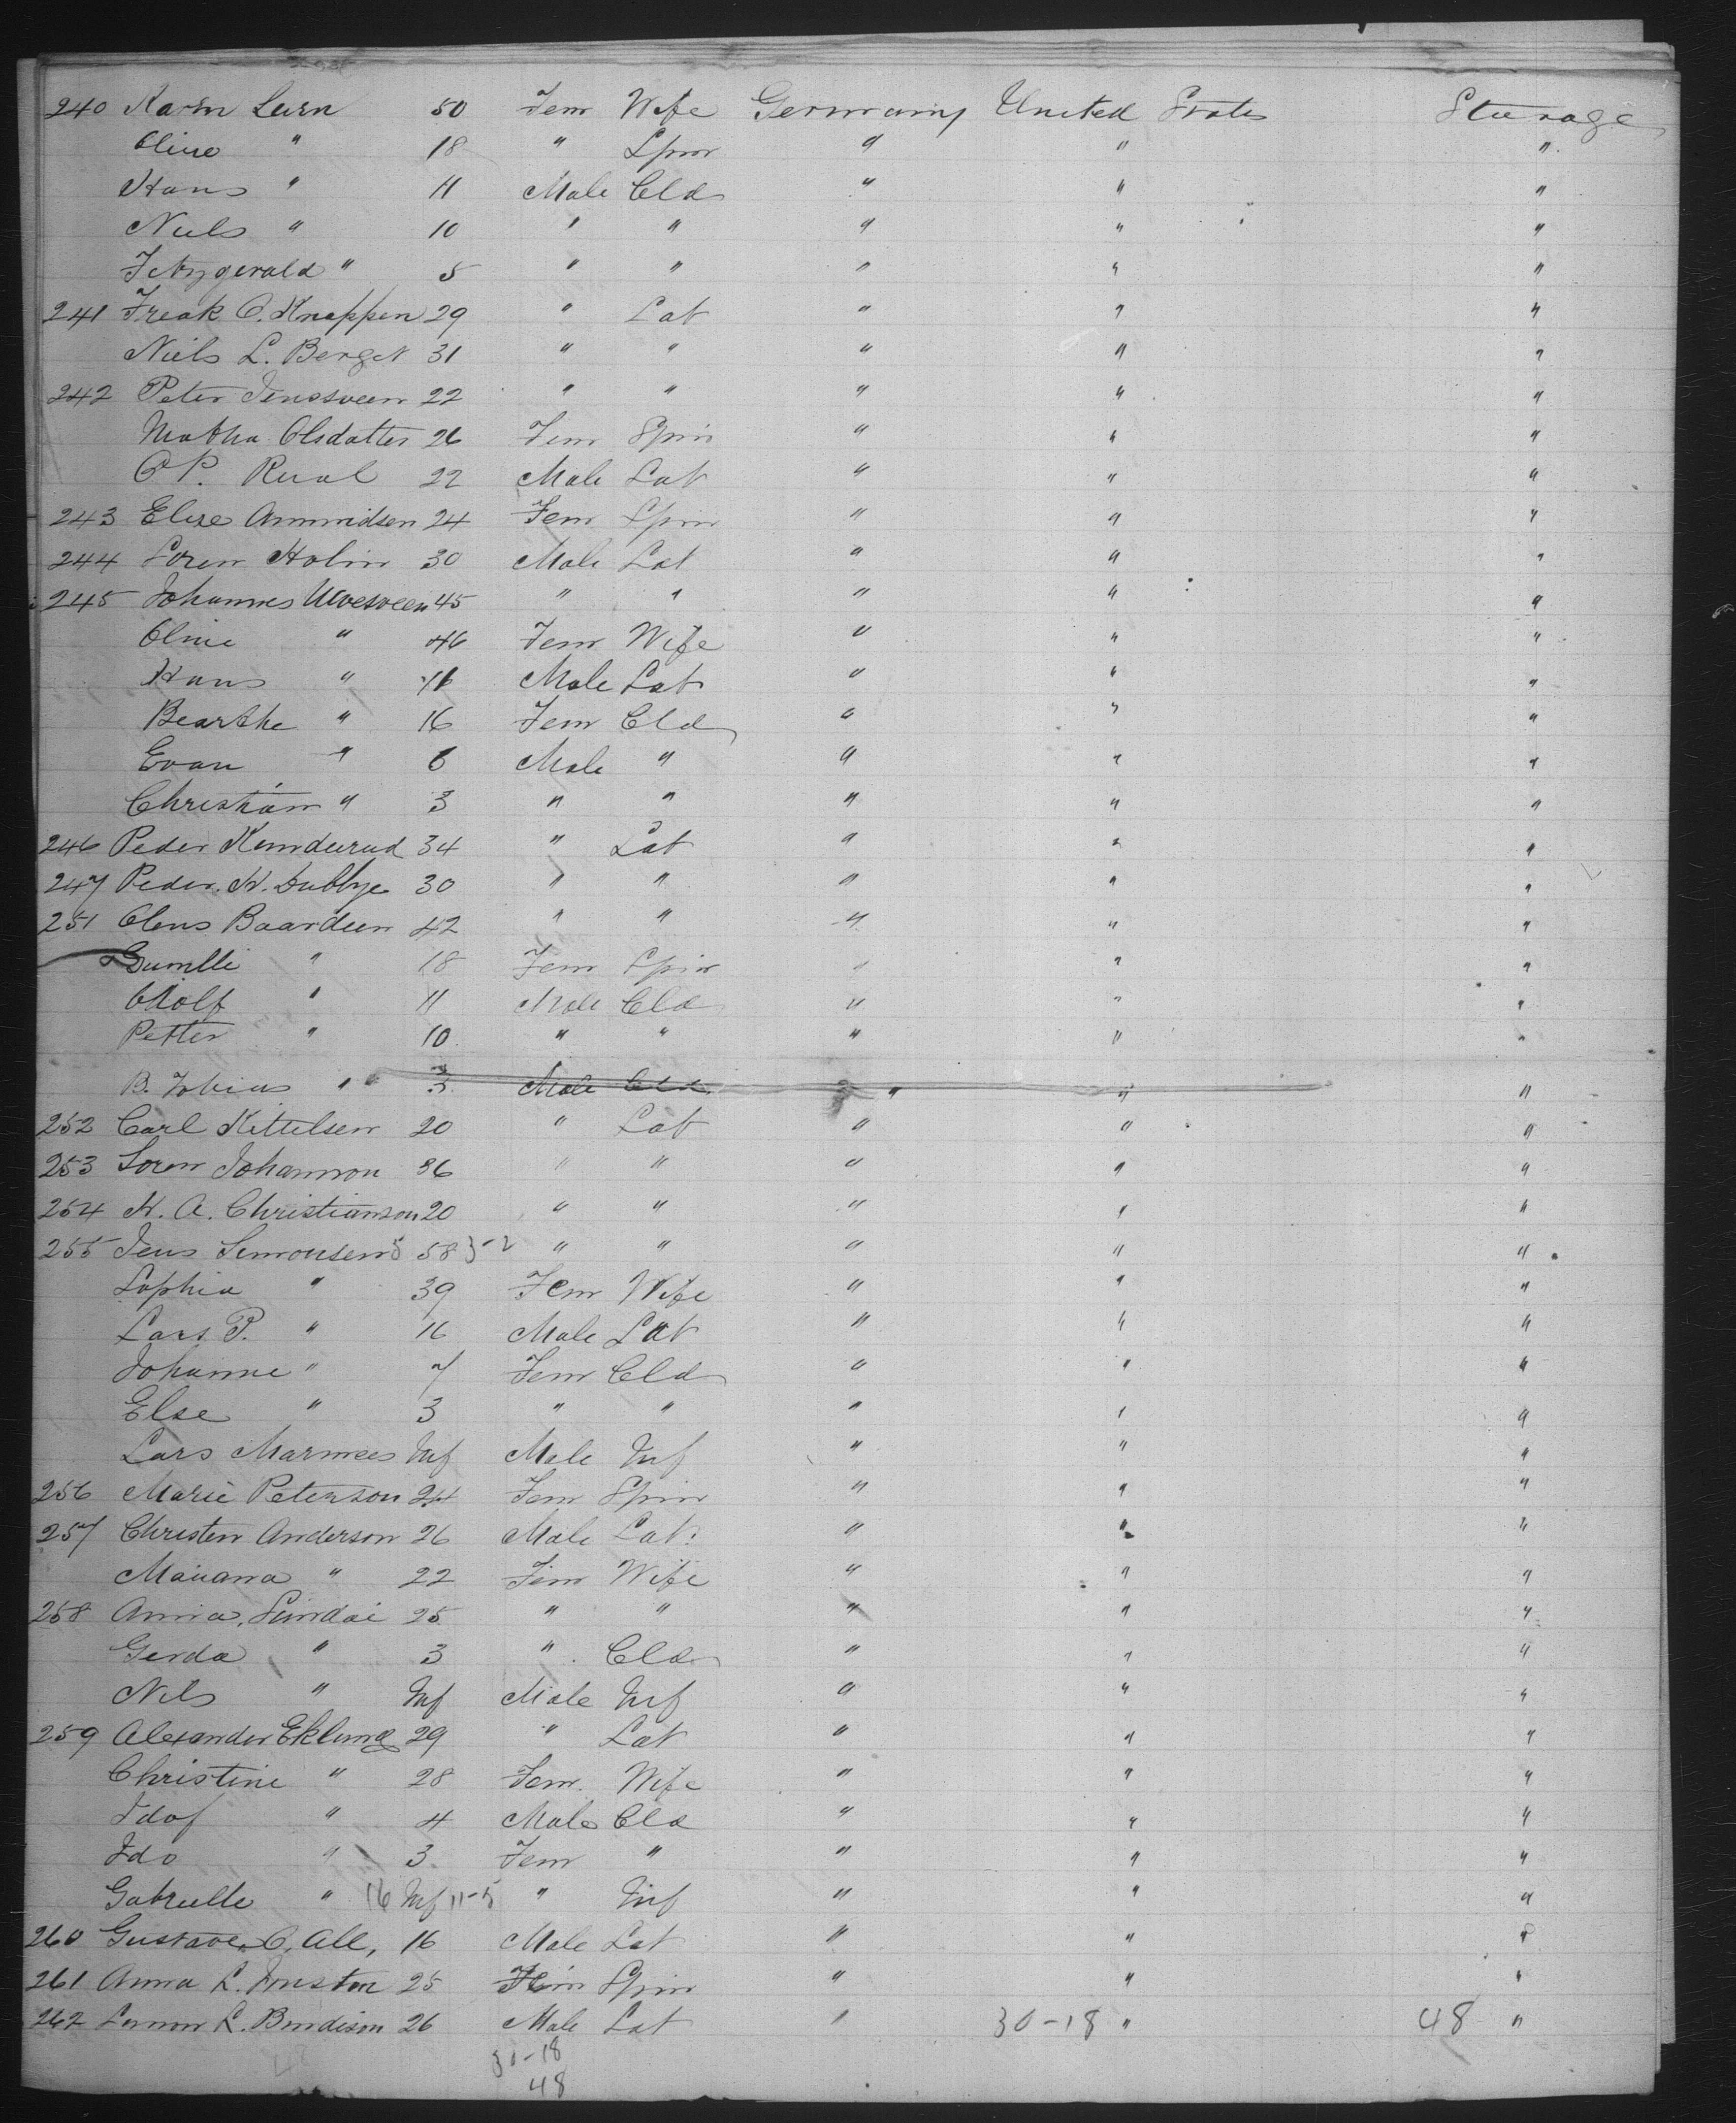 240 Karn Larn 50 Fem Wife Germany United States Steerage
Oline " 18 " Spin " " "
Hans " 11 Male Cld " " "
Niels " 10 " " " " "
Fitzgerald " 5 " " " " "
241 Freak O. Knappen 29 " Lab " " "
Niels L. Berget 31 " " " " "
242 Peter Jenssveen 22 " " " " "
Mathea Olsdatter 26 Fem Spin " " "
O P. Rual 22 Male Lab " " "
243 Elise Ammidsen 24 Fem Spin " " "
244 Soren Holm 30 Male Lab " " "
245 Johannes Ulvesveen 45 " " " " "
Oline " 46 Fem Wife " " "
Hans " Male Lab " " "
Bearthe " 16 Fem Cld " " "
Evan " 6 Male " " " "
Christian " 3 " " " " "
246 Peder Kinderud 34 " Lab " " "
247 Peder. N. Dubbye 30 " " " " "
251 Olens Baardsen 42 " " " " "
Gunilli " 18 Fem Spin " " "
" 11 Male Cld " " "
Petter " 10 " " " " "
B. Tobias " 3 Male Cld " " "
252 Carl Kittelsen 20 " Lab " " "
253 Soren Johannson 36 " " " " "
254 N. A. Christianson 20 " " " " "
255 Jens Simonsen 58 " " " " "
Sophia " 39 Fem Wife " " "
Lars P. " 16 Male Lab " " "
Johanne " 7 Fem Cld " " "
Else " 3 " " " " "
Lars Marinees Inf Male Inf " " "
256 Marie Peterson 24 Fem Spin " " "
257 Christen Anderson 26 Male Lab " " "
Maiana " 22 Fem Wife " " "
258 Anna Lindai 25 " " " " "
Gerda " 3 " Cld " " "
Nils " Inf Male Inf " " "
259 Alexander Eklund 29 " Lab " " "
Christine " 28 Fem Wife " " "
Idof " 4 Male Cld " " "
Ida " 3 Fem " " " "
Gabrielle " 16 Inf 11-5 " Inf " " "
260 Gustave O. All, 16 Male Lab " " "
261 Anna L. 25 Fem Spin " " "
262 L. Bendison 26 Male Lab " 30-18 " 48 "
30-18
48